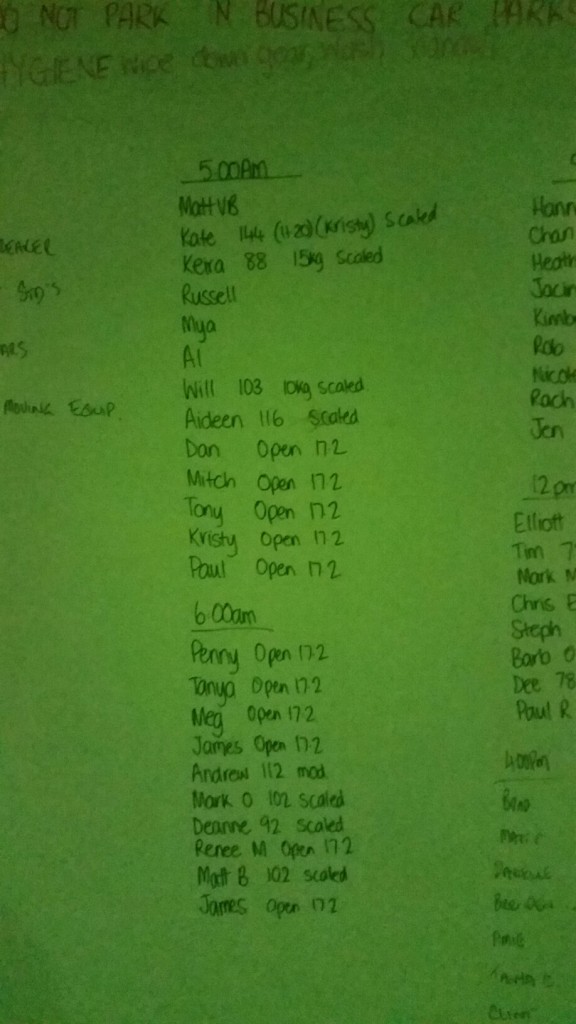 DO NOT PARK IN BUSINESS CAR PARKS
HYGIENE wipe down gear, wash hands
EQUIP.
5:00AM
Matt VB
Kate 144 (Kristy) Scaled
Keira 88 15kg Scaled
Russell
Mya
Al
Will 103 10kg scaled
Aideen 116 Scaled
Dan Open 17.2
Mitch Open 17.2
Tony Open 17.2
Kristy Open 17.2
Paul Open 17.2
6:00am
Penny Open 17.2
Tanya Open 17.2
Meg Open 17.2
James Open 17.2
Andrew 112 mod
Mark O 102 scaled
Deanne 92 scaled
Renee M Open 17.2
Matt B 102 scaled
James Open 17.2
Hann
Chan
Heath
Jacin
Kimb
Rob
Nicole
Rach
Jen
12pm
Elliott
Tim 7
Mark M
Chris E
Steph
Barb O
Dee 78
Paul R
4:00pm
Brad